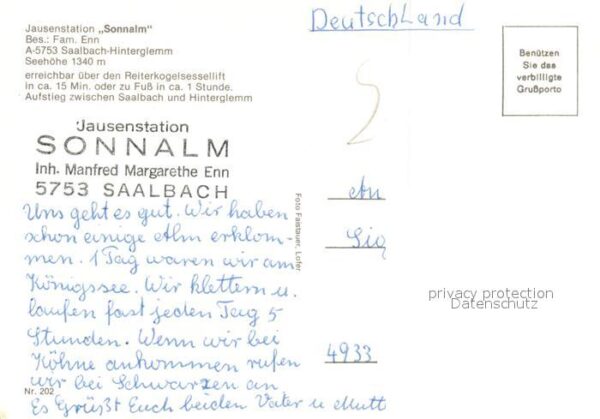 Jausenstation „Sonnalm"
Bes.: Fam. Enn
A-5753 Saalbach-Hinterglemm
Seehöhe 1340 m
erreichbar über den Reiterkogelsessellift
in ca. 15 Min. oder zu Fuß in ca. 1 Stunde.
Aufstieg zwischen Saalbach und Hinterglemm
Jausenstation
SONNALM
Inh. Manfred Margarethe Enn
5753 SAALBACH
Uns geht es gut. Wir haben
schon einige Alm erklom-
men. 1 Tag waren wir am
Königssee. Wir klettern u.
laufen fast jeden Tag 5
Stunden. Wenn wir bei
Köhne ankommen rufen
wir bei Schwarzen an
Es Grüßt Euch beiden Vater u Mutt
Nr. 202
Foto Faistauer, Lofer
Deutschland
Benützen
Sie das
verbilligte
Grußporto
5
An
Sig
4933
privacy protection
Datenschutz